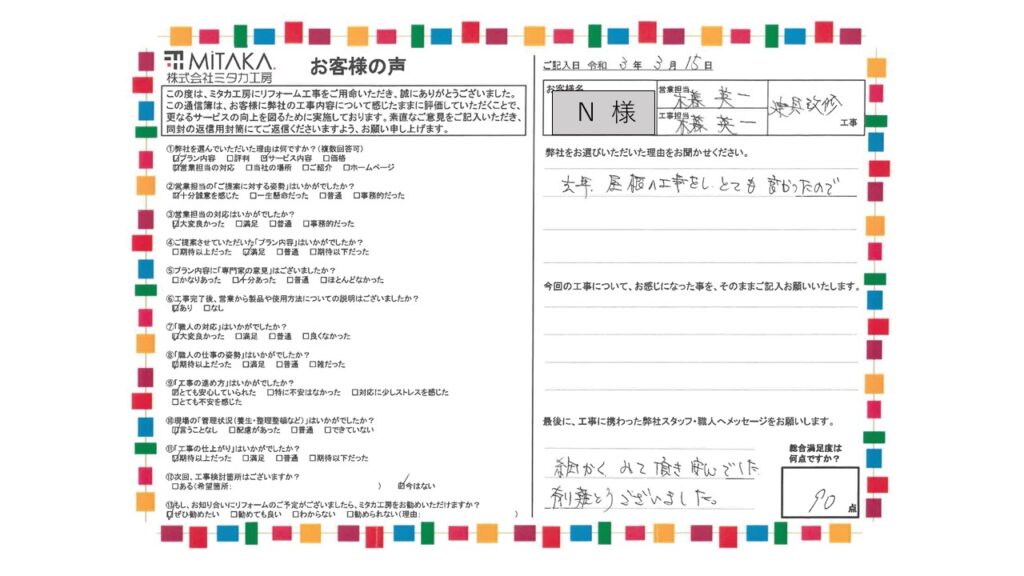 MiTAKA.
株式会社ミタカ工房
お客様の声
この度は、ミタカ工房にリフォーム工事をご用命いただき、誠にありがとうございました。
この通信簿は、お客様に弊社の工事内容について感じたままに評価していただくことで、
更なるサービスの向上を図るために実施しております。素直なご意見をご記入いただき、
同封の返信用封筒にてご返信くださいますよう、お願い申し上げます。
①弊社を選んでいただいた理由は何ですか？(複数回答可)
☑プラン内容 □評判 ☑サービス内容 □価格
☑営業担当の対応 □当社の場所 □ご紹介 □ホームページ
②営業担当の「ご提案に対する姿勢」はいかがでしたか？
☑十分誠意を感じた □一生懸命だった □普通 □事務的だった
③営業担当の対応はいかがでしたか？
☑大変良かった □満足 □普通 □事務的だった
④ご提案させていただいた「プラン内容」はいかがでしたか？
□期待以上だった ☑満足 □普通 □期待以下だった
⑤プラン内容に「専門家の意見」はございましたか？
□かなりあった ☑十分あった □普通 □ほとんどなかった
⑥工事完了後、営業から製品や使用方法についての説明はございましたか？
☑あり □なし
⑦「職人の対応」はいかがでしたか？
☑大変良かった □満足 □普通 □良くなかった
⑧「職人の仕事の姿勢」はいかがでしたか？
☑期待以上だった □満足 □普通 □雑だった
⑨「工事の進め方」はいかがでしたか？
☑とても安心していられた □特に不安はなかった □対応に少しストレスを感じた
□とても不安を感じた
⑩現場の「管理状況(養生・整理整頓など)」はいかがでしたか？
☑言うことなし □配慮があった □普通 □できていない
⑪「工事の仕上がり」はいかがでしたか？
☑期待以上だった □満足 □普通 □期待以下だった
⑫次回、工事検討箇所はございますか？
□ある(希望箇所: ) ☑今はない
⑬もし、お知り合いにリフォームのご予定がございましたら、ミタカ工房をお勧めいただけますか？
☑ぜひ勧めたい □勧めても良い □わからない □勧められない(理由: )
ご記入日 令和 3 年 3 月 15 日
お客様名
N 様
営業担当
木藤 英一
工事担当
木藤 英一
建具改修
工事
弊社をお選びいただいた理由をお聞かせください。
去年、屋根の工事をし、とても良かったので
今回の工事について、お感じになった事を、そのままご記入お願いいたします。
最後に、工事に携わった弊社スタッフ・職人へメッセージをお願いします。
細かくみて頂き
有難とうございました。
総合満足度は
何点ですか？
90 点